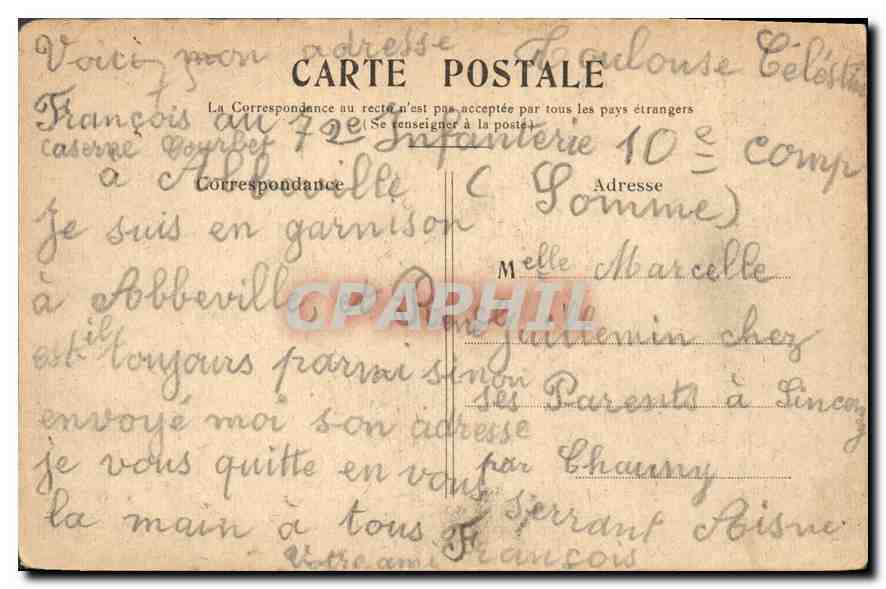 Voici mon adresse Toulouse Célestin
CARTE POSTALE
La Correspondance au recto n'est pas acceptée par tous les pays étrangers
François au 72e Infanterie 10e comp
(Se renseigner à la poste)
caserne Courbet
à Abbeville (Somme)
Correspondance
Adresse
Je suis en garnison
à Abbeville et René
est il toujours parmi sinon
envoyé moi son adresse
je vous quitte en vous
serrant
la main à tous
Votre ami François
Melle Marcelle
Guillemin chez
ses Parents à Sinceny
par Chauny
Aisne
CPAPHIL